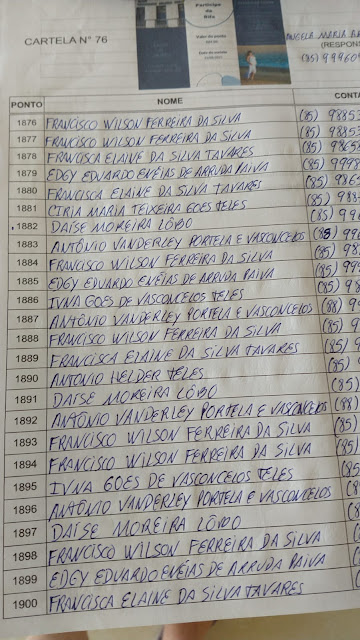 Participe da Rifa
CARTELA N° 76
ANGELA MARIA
(85) 99960
PONTO NOME CONTA
1876 FRANCISCO WILSON FERREIRA DA SILVA (85) 9885
1877 FRANCISCO WILSON FERREIRA DA SILVA (85) 9885
1878 FRANCISCA ELAINE DA SILVA TAVARES (85) 9865
1879 EDGY EDUARDO ENÉIAS DE ARRUDA PAIVA (85) 9999
1880 FRANCISCA ELAINE DA SILVA TAVARES (85) 986
1881 CIRIA MARIA TEIXEIRA GOES TELES (85) 988
1882 DAÍSE MOREIRA LÔBO (85) 99
1883 ANTÔNIO VANDERLEY PORTELA E VASCONCELOS (85) 99
1884 FRANCISCO WILSON FERREIRA DA SILVA (85) 98
1885 EDGY EDUARDO ENÉIAS DE ARRUDA PAIVA (85) 99
1886 IVNA GOES DE VASCONCELOS TELES (85) 9
1887 ANTÔNIO VANDERLEY PORTELA E VASCONCELOS (88) 9
1888 FRANCISCO WILSON FERREIRA DA SILVA (85) 9
1889 FRANCISCA ELAINE DA SILVA TAVARES (85) 9
1890 ANTONIO HELDER TELES (85)
1891 DAÍSE MOREIRA LÔBO (85)
1892 ANTÔNIO VANDERLEY PORTELA E VASCONCELOS (88)
1893 FRANCISCO WILSON FERREIRA DA SILVA (85)
1894 FRANCISCO WILSON FERREIRA DA SILVA (85)
1895 IVNA GOES DE VASCONCELOS TELES (85
1896 ANTÔNIO VANDERLEY PORTELA E VASCONCELOS (8
1897 DAÍSE MOREIRA LÔBO (8
1898 FRANCISCO WILSON FERREIRA DA SILVA (8
1899 EDGY EDUARDO ENÉIAS DE ARRUDA PAIVA (8
1900 FRANCISCA ELAINE DA SILVA TAVARES